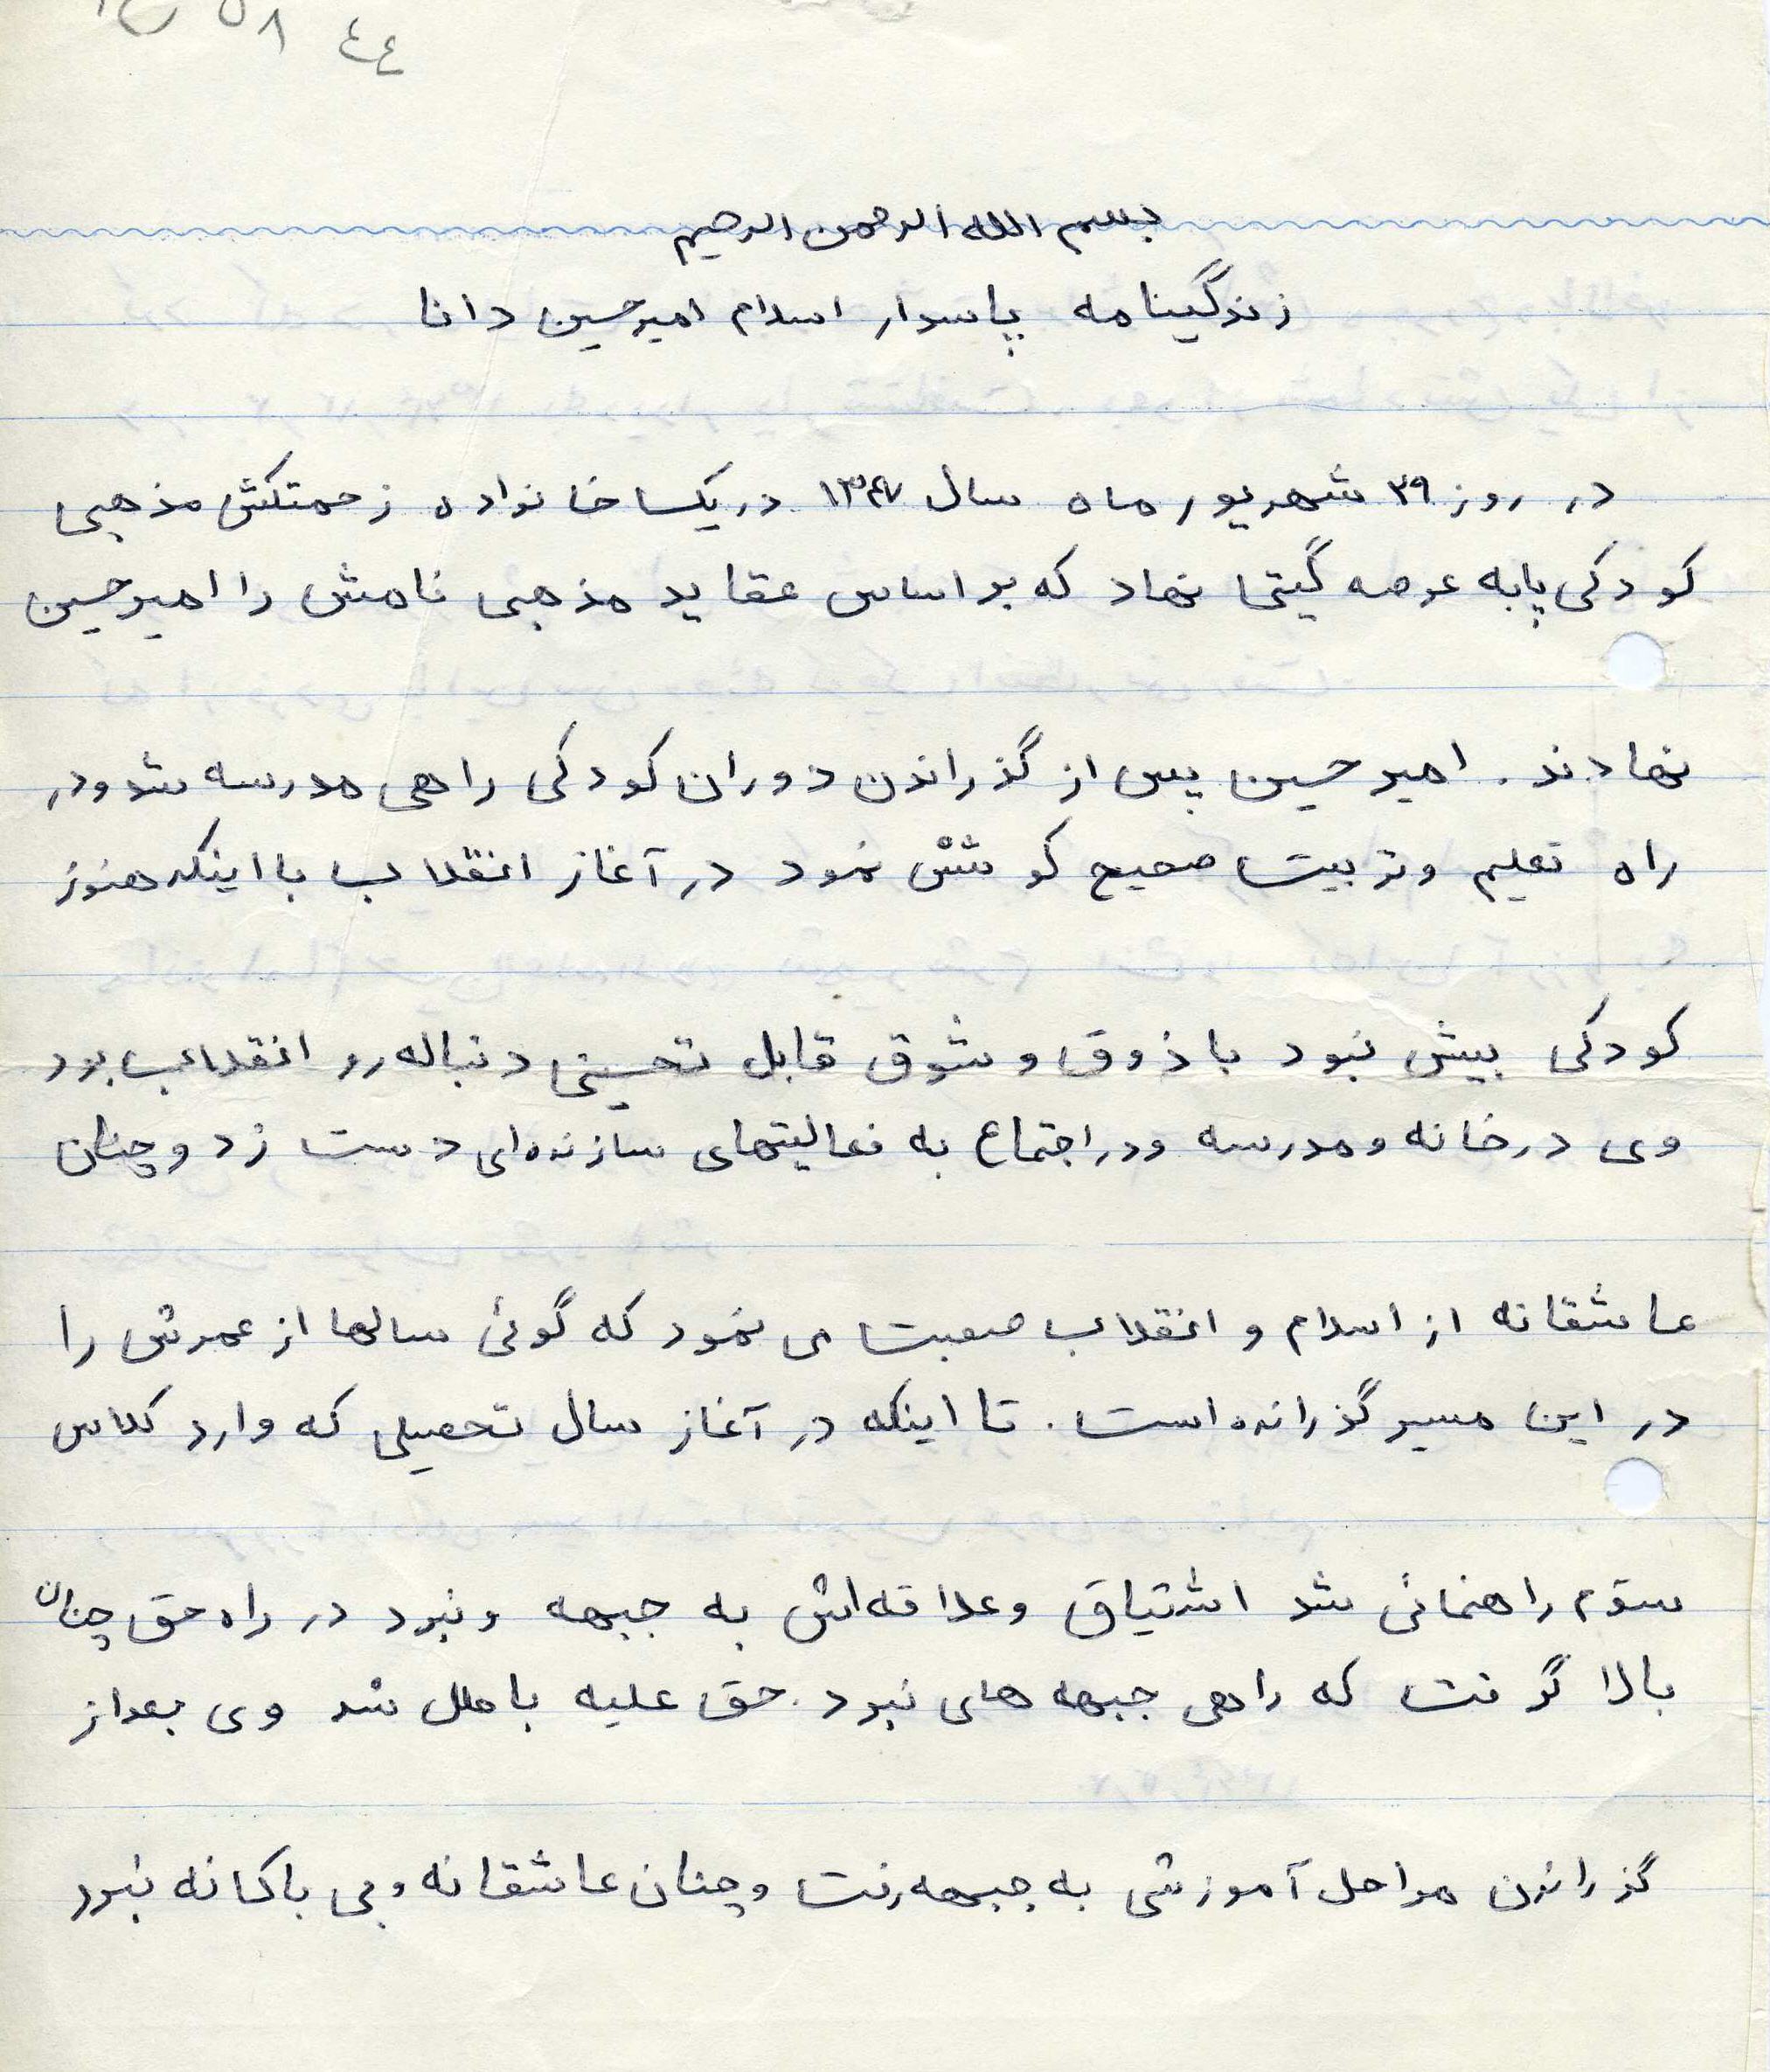 ٤٤
بسم الله الرحمن الرحیم
زندگینامه پاسدار اسلام امیرحسین دانا
در روز ۲۹ شهریور ماه سال ۱۳۴۷ در یک خانواده زحمتکش مذهبی
کودکی پا به عرصه گیتی نهاد که بر اساس عقاید مذهبی نامش را امیرحسین
نهادند. امیرحسین پس از گذراندن دوران کودکی راهی مدرسه شد و در
راه تعلیم و تربیت صحیح کوشش نمود در آغاز انقلاب با اینکه هنوز
کودکی بیش نبود با ذوق و شوق قابل تحسینی دنباله رو انقلاب بود
وی در خانه و مدرسه و در اجتماع به فعالیتهای سازنده‌ای دست زد و چنان
عاشقانه از اسلام و انقلاب صحبت می نمود که گوئی سالها از عمرش را
در این مسیر گذرانده است. تا اینکه در آغاز سال تحصیلی که وارد کلاس
سوّم راهنمائی شد اشتیاق و علاقه‌اش به جبهه و نبرد در راه حق چنان
بالا گرفت که راهی جبهه های نبرد حق علیه باطل شد وی بعد از
گذراندن مراحل آموزشی به جبهه رفت و چنان عاشقانه و بی باکانه نبرد